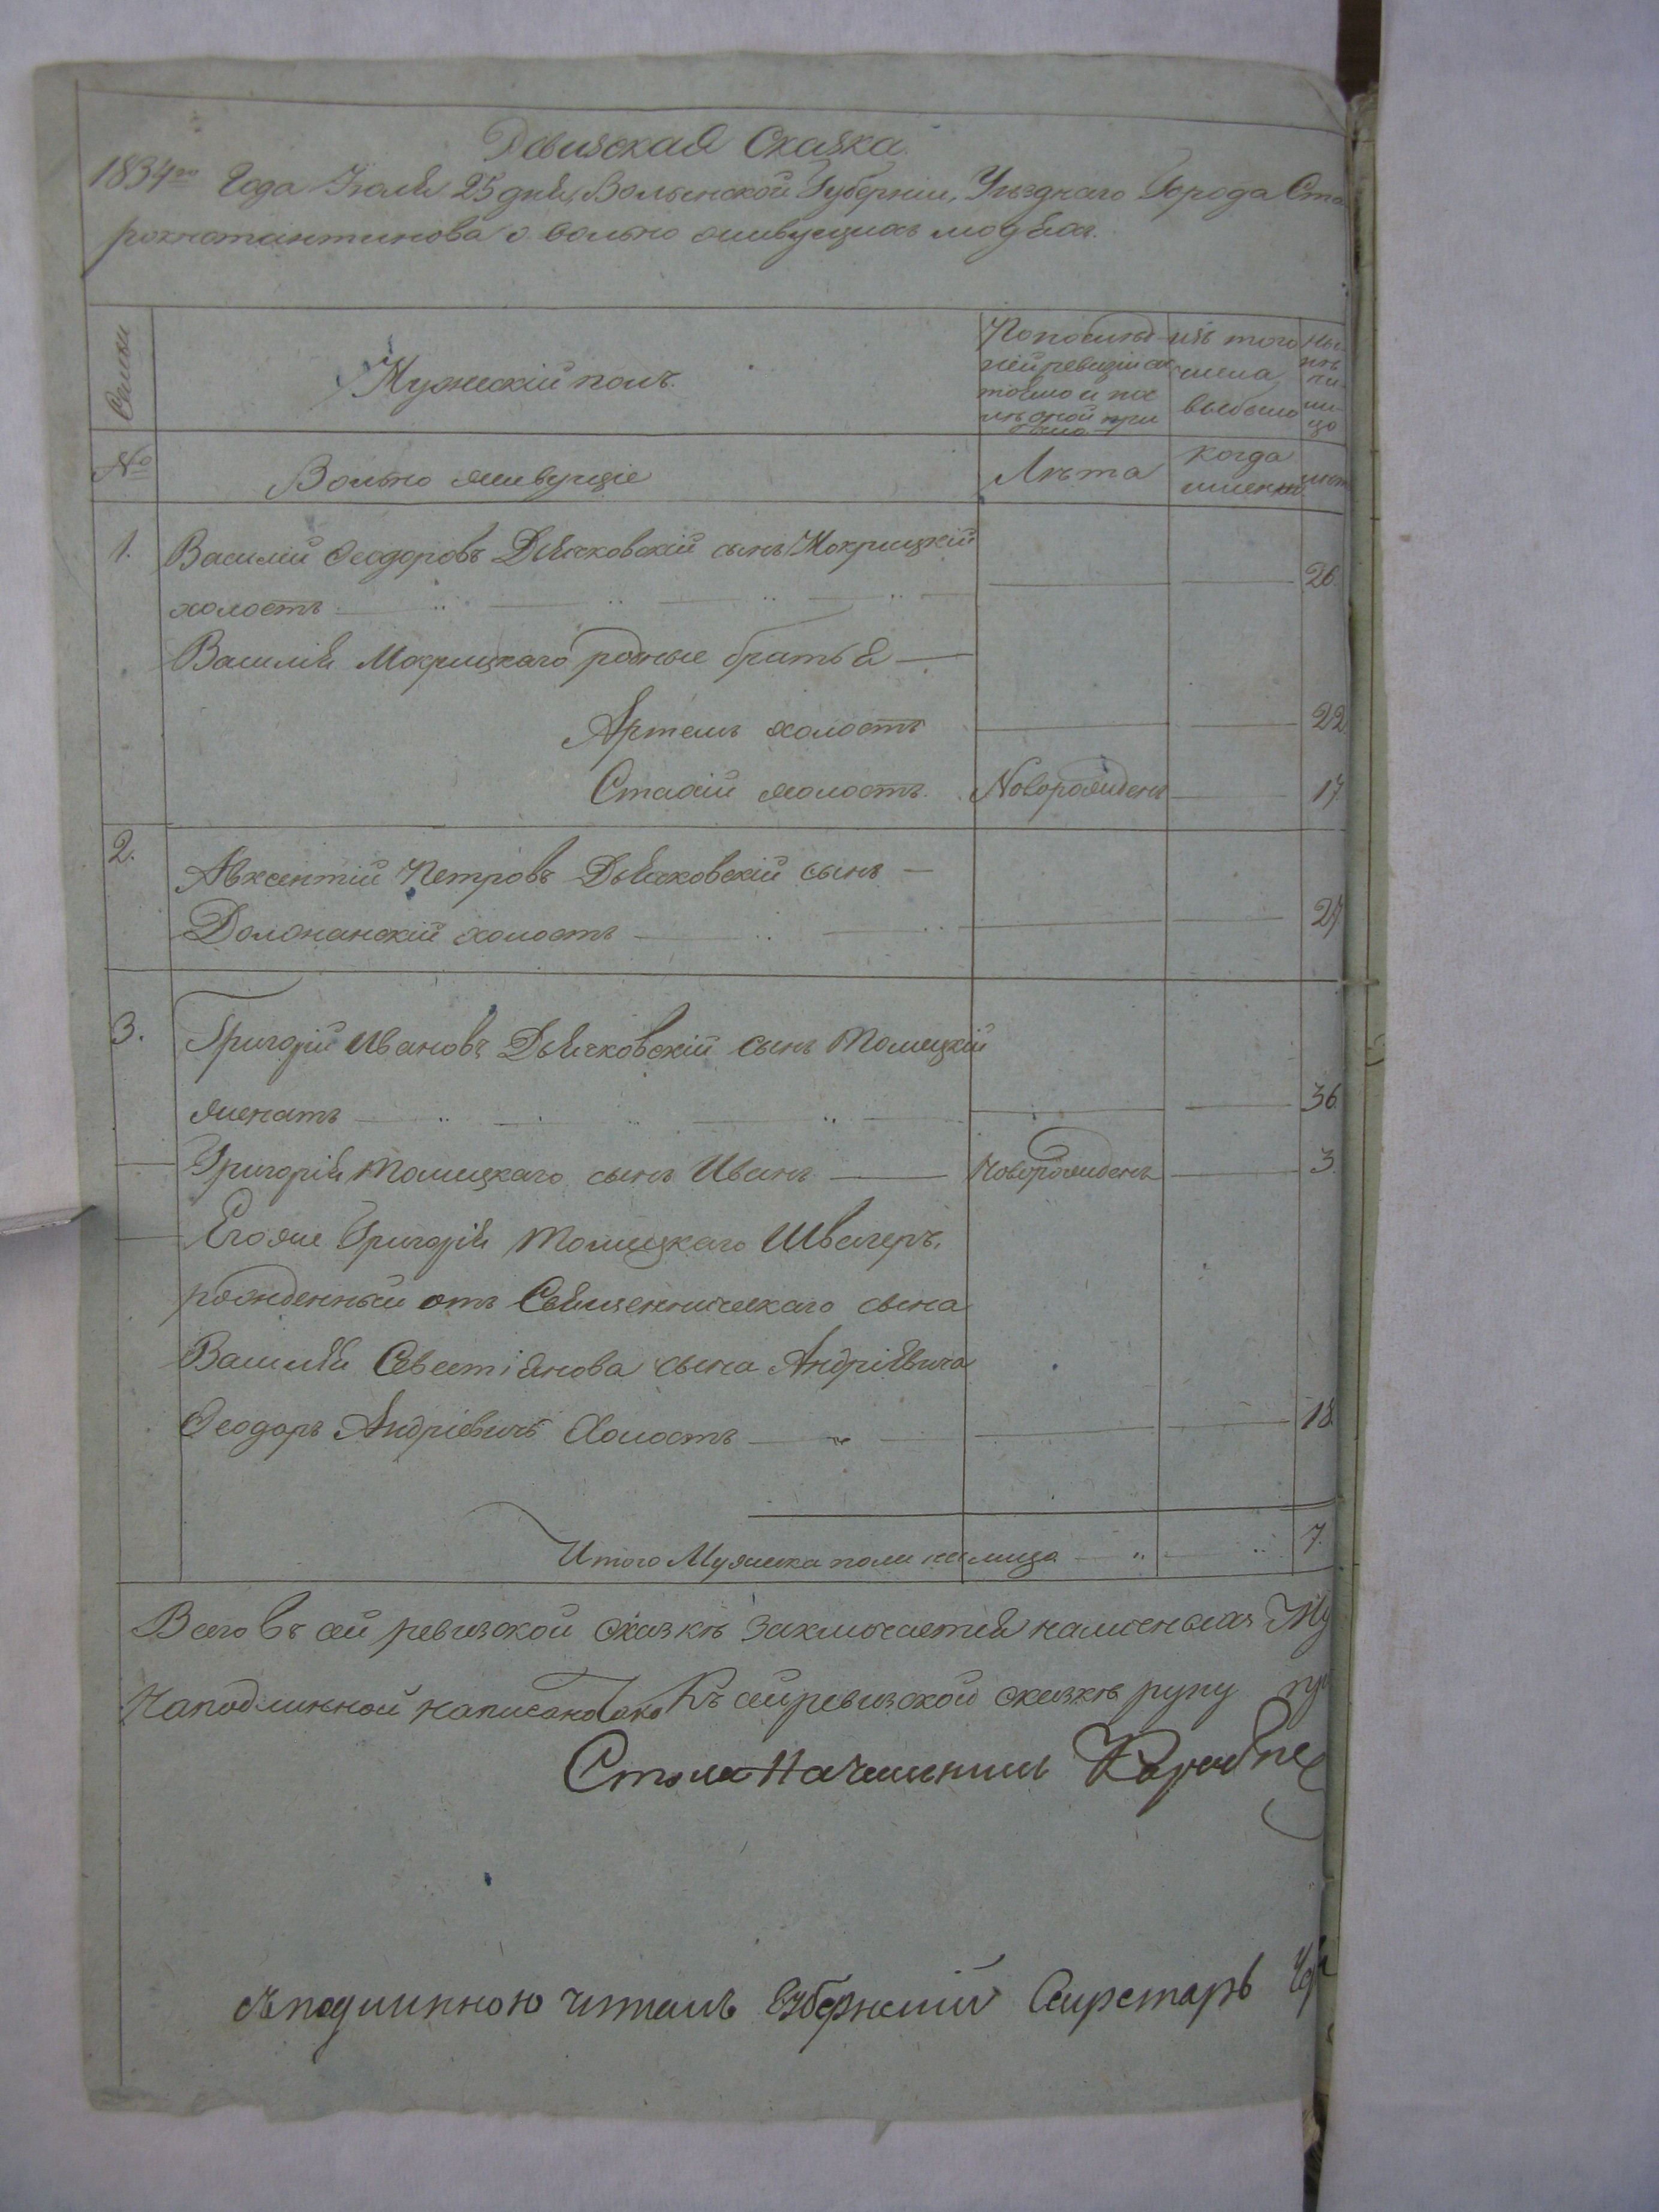 Ревизская Сказка.
1834го Года Іюля 25 дня, Волынской Губерніи, Уѣзднаго Города Ста
роконстантинова о вольно живущихъ людяхъ.
Семьи
Мужескій полъ.
По послѣд
ней ревизіи со
стояло и по
слѣ оной при
было
изъ того
числа
выбыло
Ны
нѣ
на
ли
цо
№
Вольно живущіе
Лѣта
Когда
именно
лѣт
1. Василій Феодоровъ Дьячковскій сынъ Мокрицкій
холостъ 26.
Василія Мокрицкаго родные братья
Артемъ холостъ 22
Стахій холостъ. Новорожденъ 17.
2.
Авксентій Петровъ Дьячковскій сынъ
Долочанскій холостъ 27
3. Григорій Ивановъ Дьячковскій сынъ Томицкій
женатъ 36.
Григорія Томицкаго сынъ Иванъ Новорожденъ 3.
Его же Григорія Томицкаго Швагеръ,
рожденный отъ Священническаго сына
Василія Севестіянова сына Андріевича
Феодоръ Андріевичъ Холостъ 18.
Итого Мужеска пола на лицо 7.
Всего въ сей ревизской сказкѣ заключается наличныхъ Му
На подлинной написано тако Къ сей ревизской сказкѣ руку пр
Столоначальникъ
Съ подлинною читалъ Губернскій Секретарь